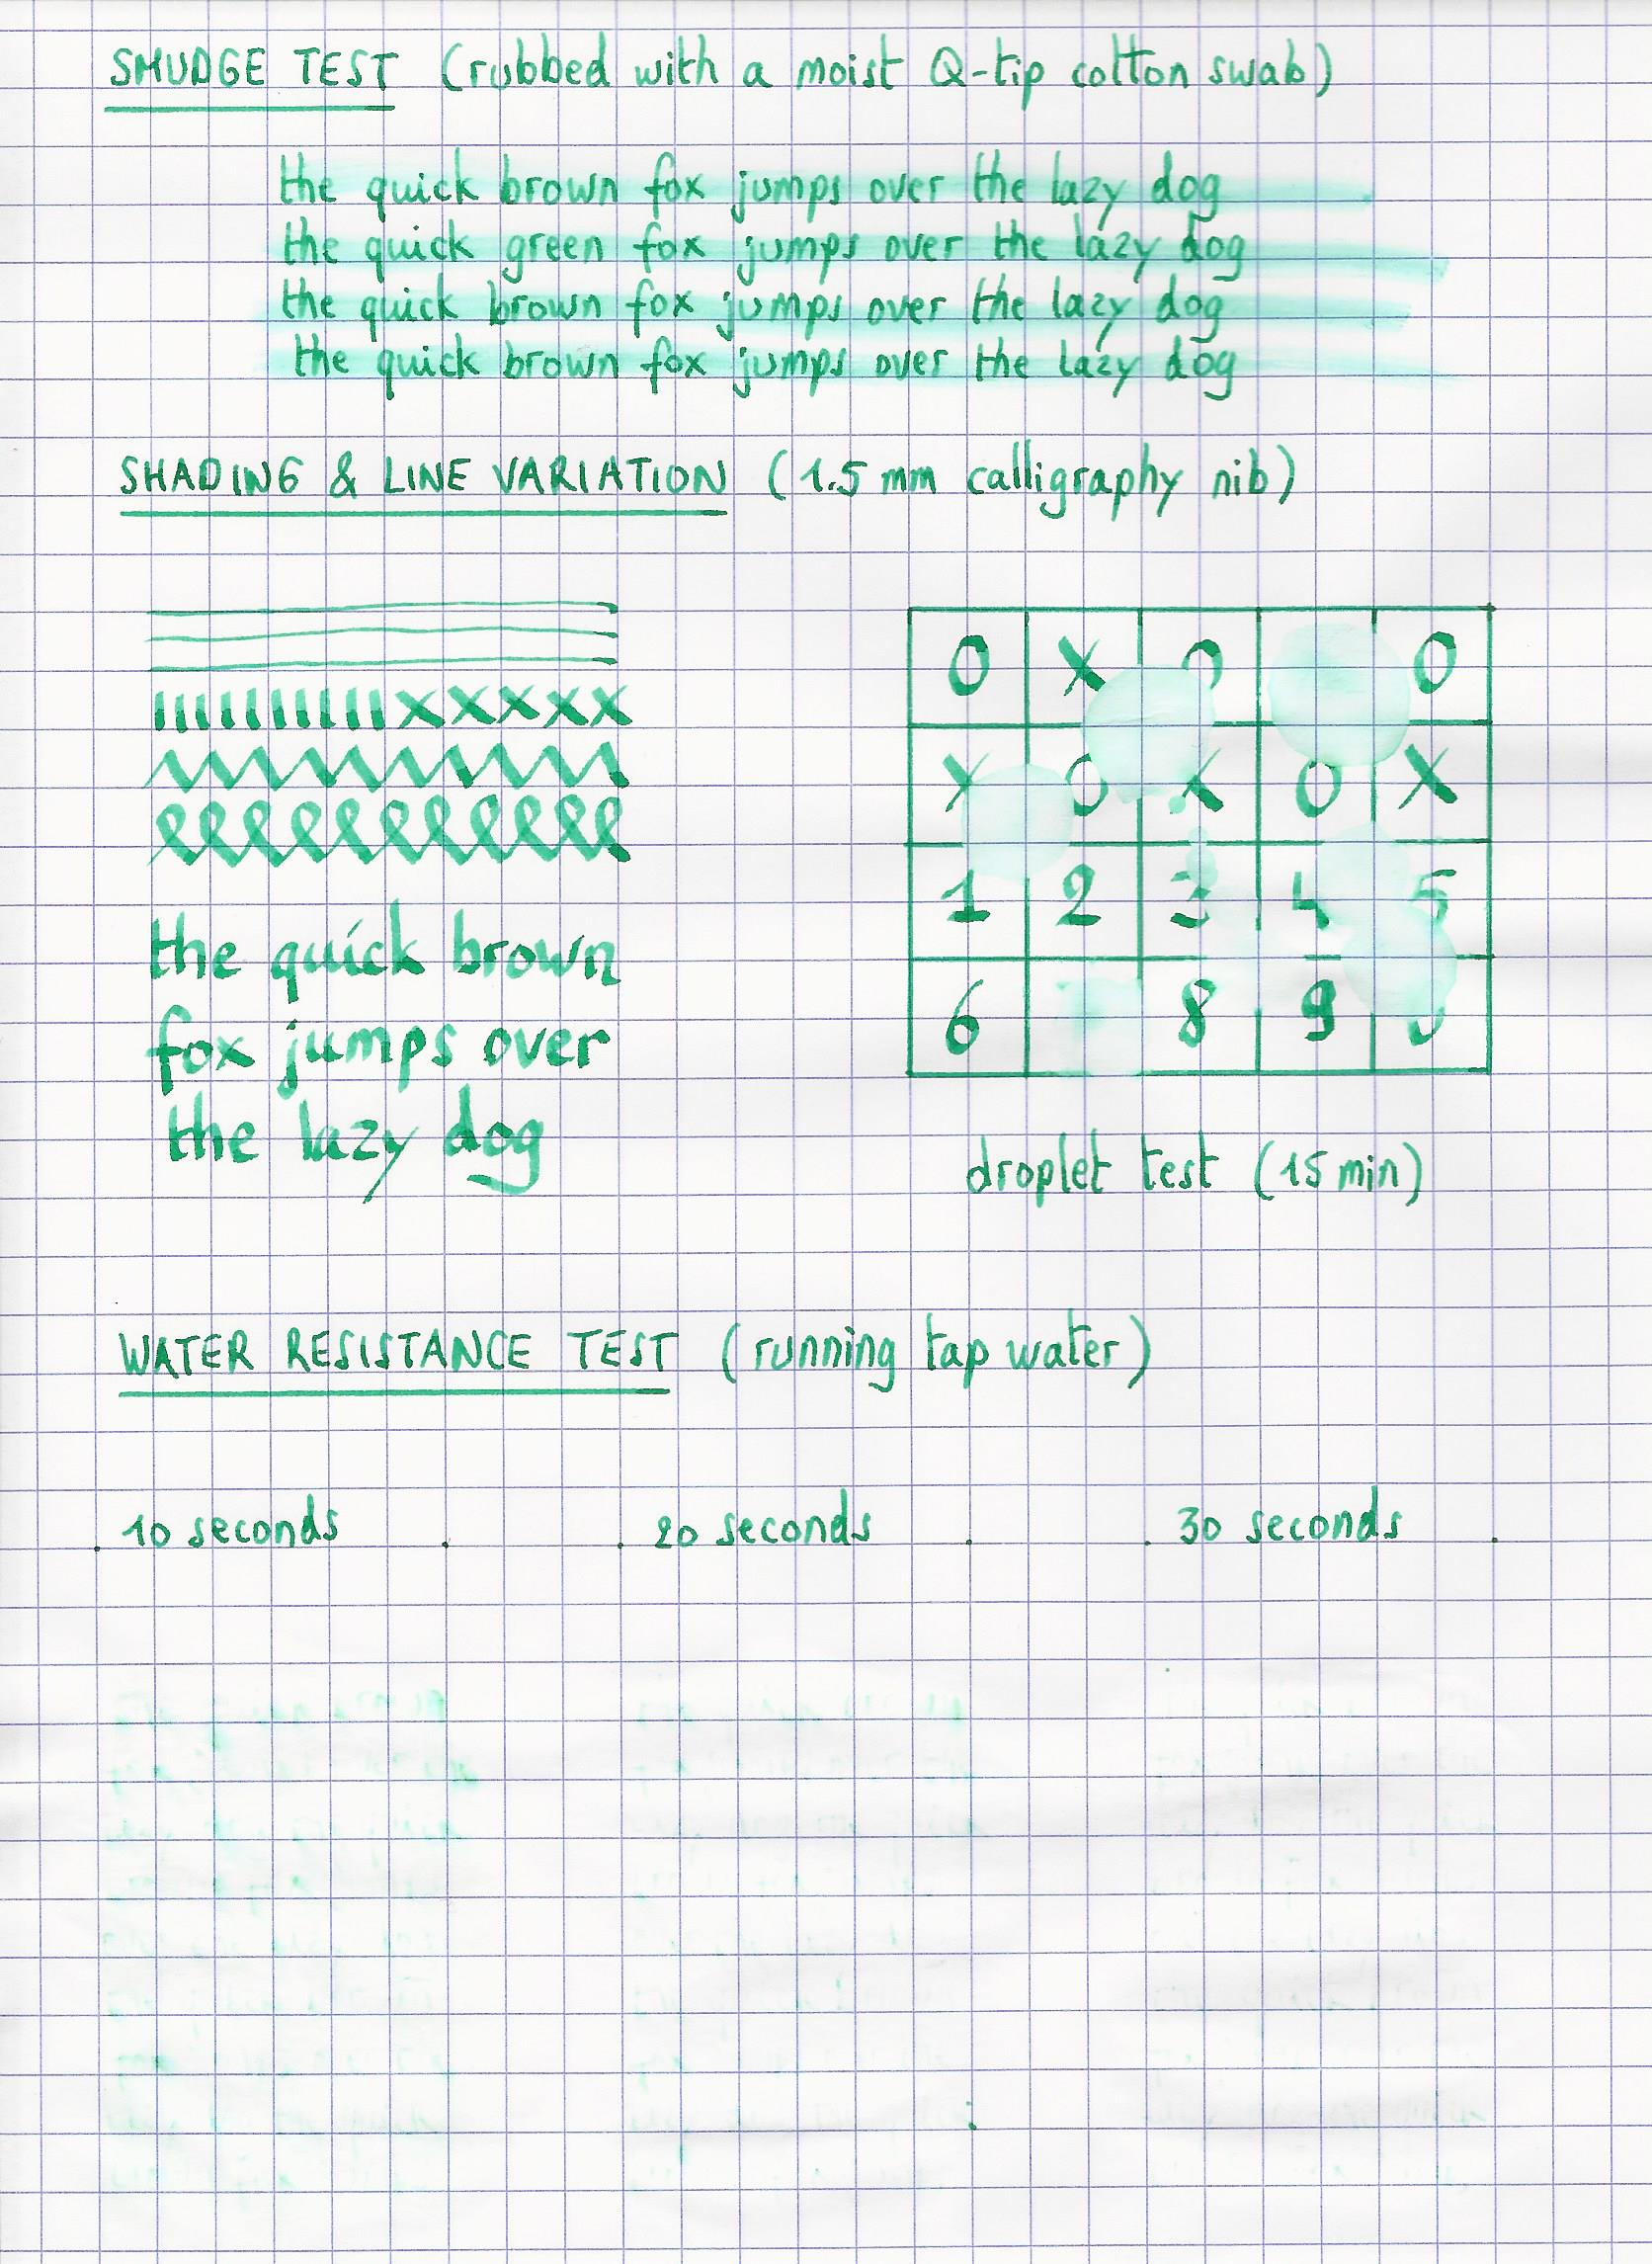 SMUDGE TEST (rubbed with a moist Q-tip cotton swab)
the quick brown fox jumps over the lazy dog
the quick green fox jumps over the lazy dog
the quick brown fox jumps over the lazy dog
the quick brown fox jumps over the lazy dog
SHADING & LINE VARIATION (1.5 mm calligraphy nib)
xxxxx
the quick brown
fox jumps over
the lazy dog
O X O O
X O X O X
1 2 3 4 5
6 8 9
droplet test (15 min)
WATER RESISTANCE TEST (running tap water)
10 seconds 20 seconds 30 seconds